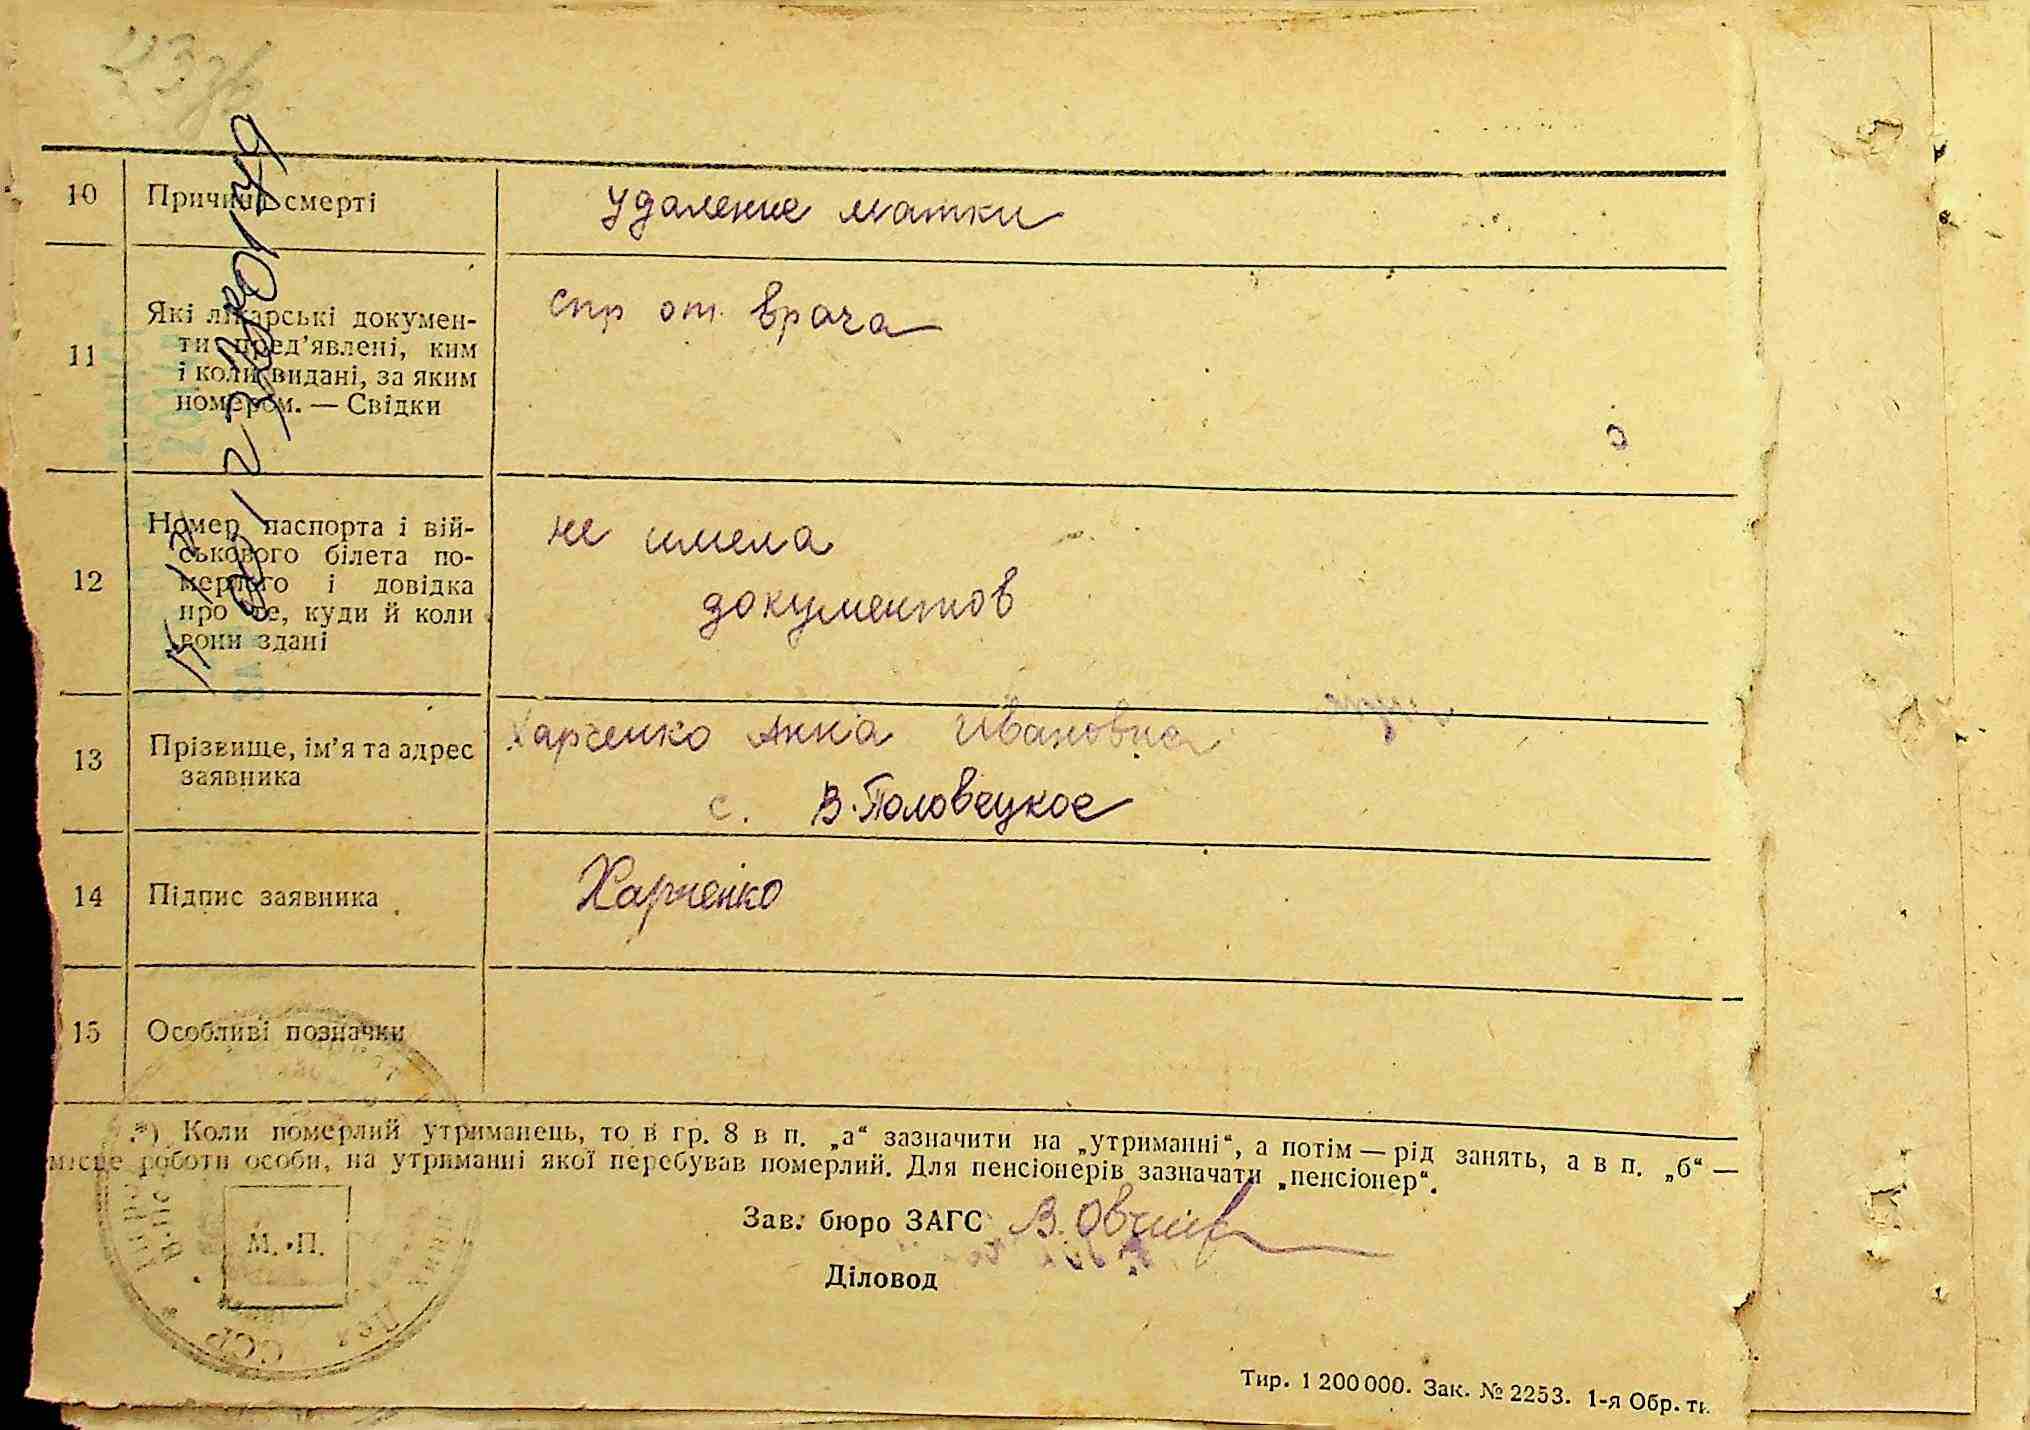 10 Причина смерті удаление матки
11 Які лікарські докумен-
ти пред’явлені, ким
і коли видані, за яким
номером. — Свідки
спр от врача
12 Номер паспорта і вій-
ськового білета по-
мерлого і довідка
про те, куди й коли
вони здані
не имела
документов
13 Прізвище, ім’я та адрес
заявника
Харченко Анна Ивановна
с. В.Половецкое
14 Підпис заявника Харченко
15 Особливі позначки
*) Коли померлий утриманець, то в гр. 8 в п. „а“ зазначити на „утриманні“, а потім — рід занять, а в п. „б“ —
місце роботи особи, на утриманні якої перебував померлий. Для пенсіонерів зазначати „пенсіонер“.
М. П.
Зав. бюро ЗАГС
Діловод
ССР
Тир. 1 200 000. Зак. № 2253. 1-я Обр. ти